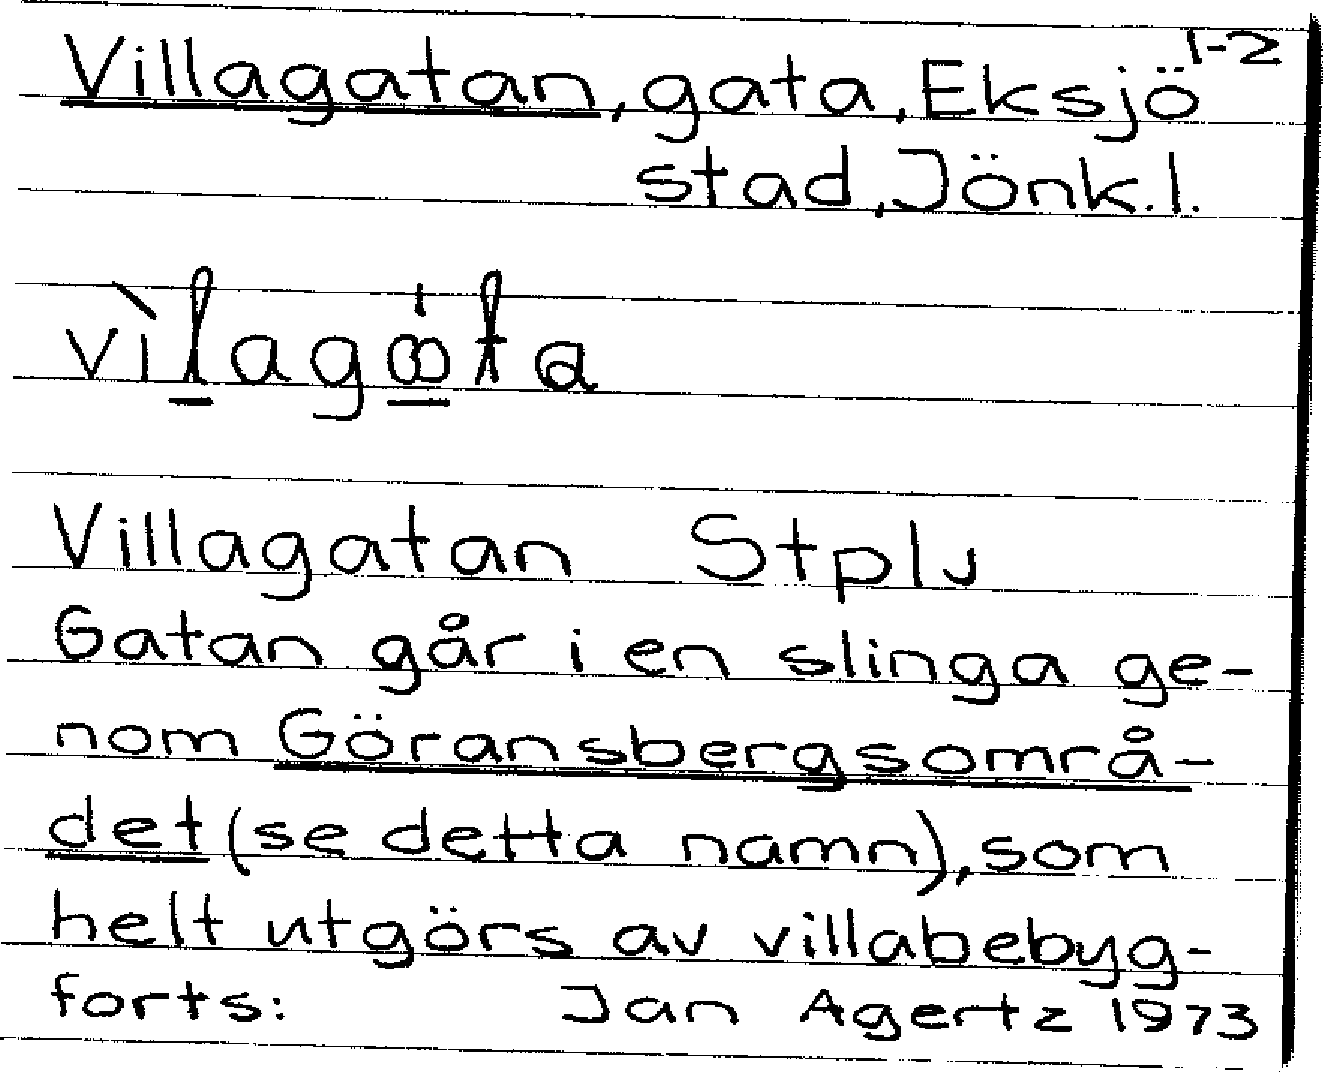 Villagatan, gata, Eksjö 1-2
stad, Jönk.l.
vìlagꝏ̍ta
Villagatan Stplv
Gatan går i en slinga ge-
nom Göransbergsområ-
det (se detta namn), som
helt utgörs av villabebyg-
forts: Jan Agertz 1973